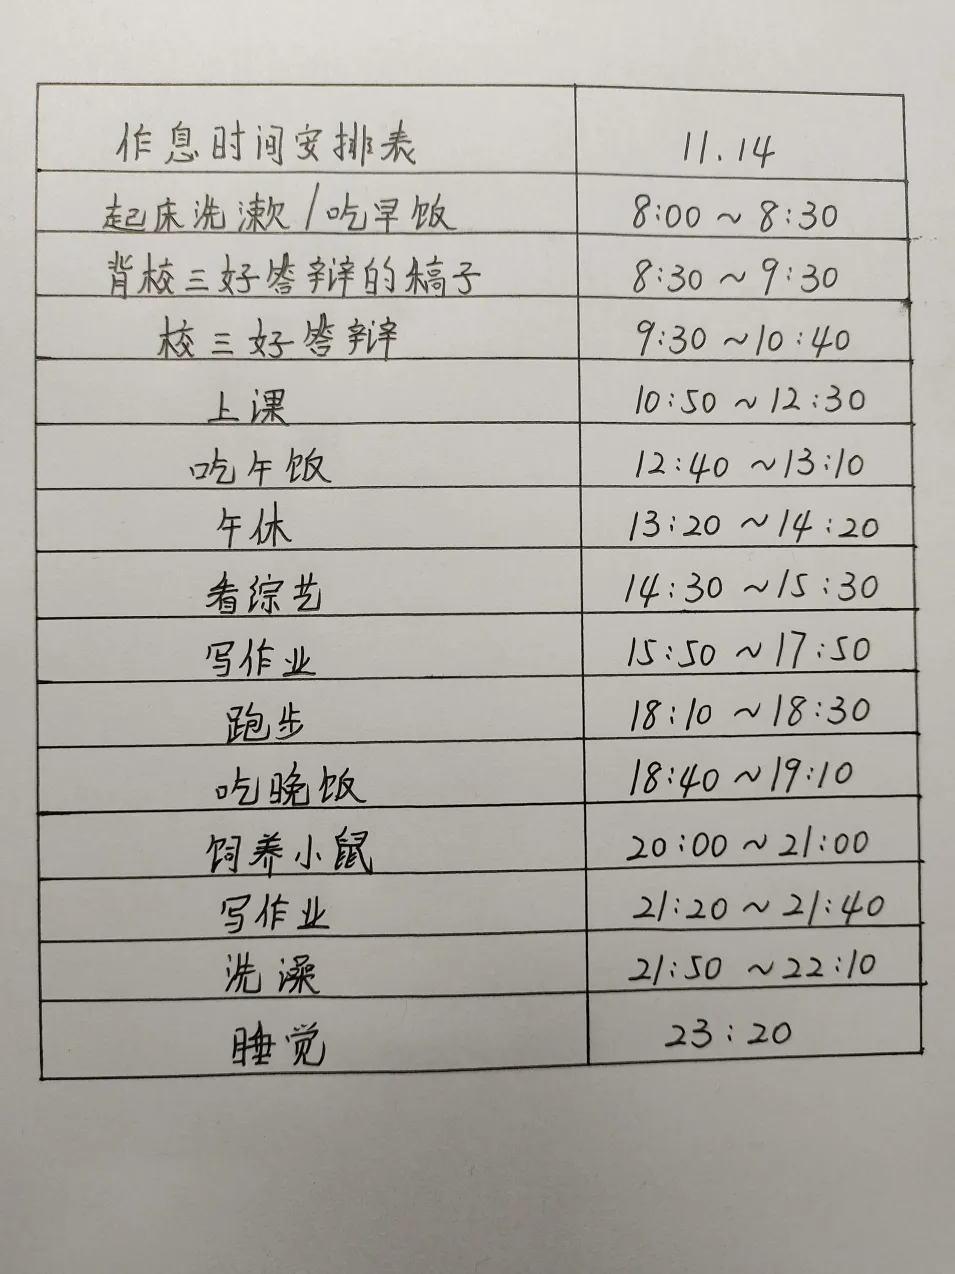 作息时间安排表 11.14
起床洗漱/吃早饭 8:00~8:30
背校三好答辩的稿子 8:30~9:30
校三好答辩 9:30~10:40
上课 10:50~12:30
吃午饭 12:40~13:10
午休 13:20~14:20
看综艺 14:30~15:30
写作业 15:50~17:50
跑步 18:10~18:30
吃晚饭 18:40~19:10
饲养小鼠 20:00~21:00
写作业 21:20~21:40
洗澡 21:50~22:10
睡觉 23:20